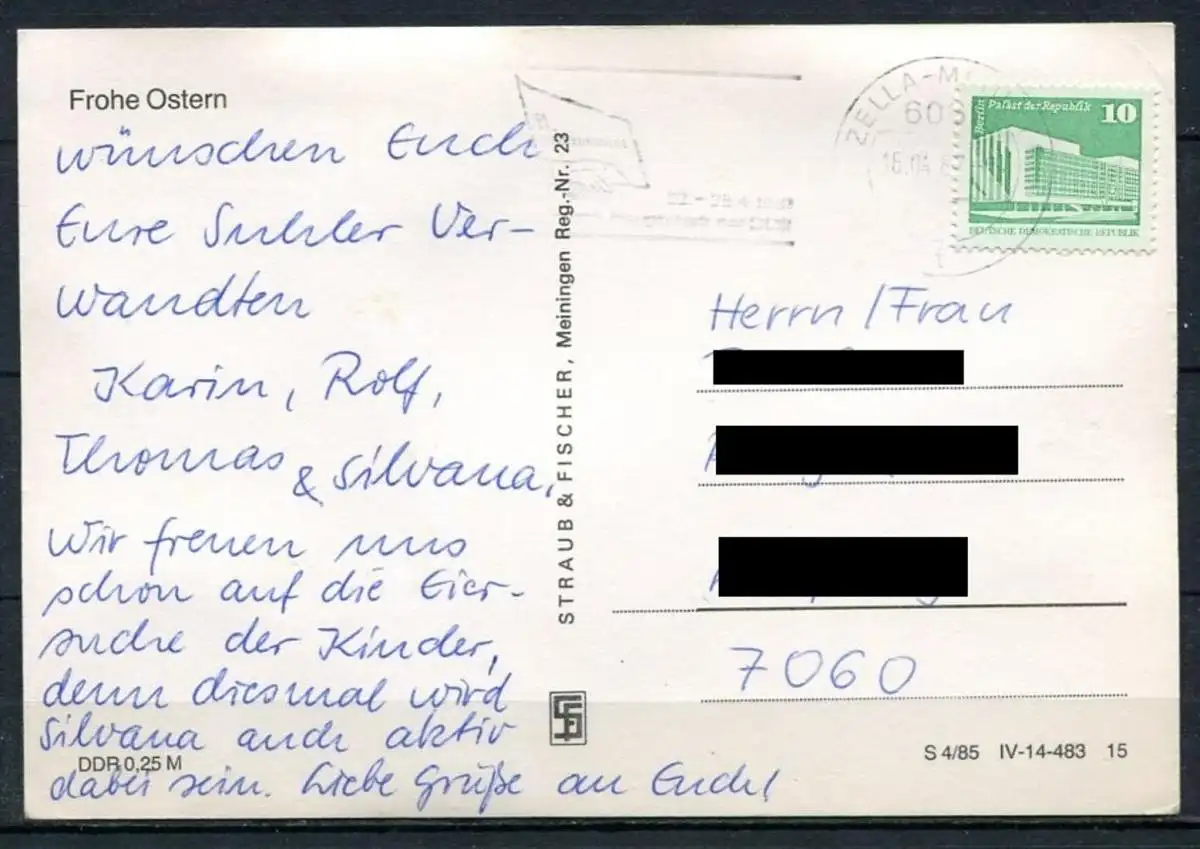 Frohe Ostern
wünschen Euch
Eure Suhler Ver-
wandten
Karin, Rolf,
Thomas
& Silvana,
Wir freuen uns
schon auf die Eier-
suche der Kinder,
denn diesmal wird
Silvana auch aktiv
dabei sein. Liebe Grüße an Euch!
DDR 0,25 M
STRAUB & FISCHER, Meiningen Reg.-Nr. 23
ZELLA-M
Berlin Palast der Republik 10
DEUTSCHE DEMOKRATISCHE REPUBLIK
Herrn/Frau
7060
S 4/85 IV-14-483 15